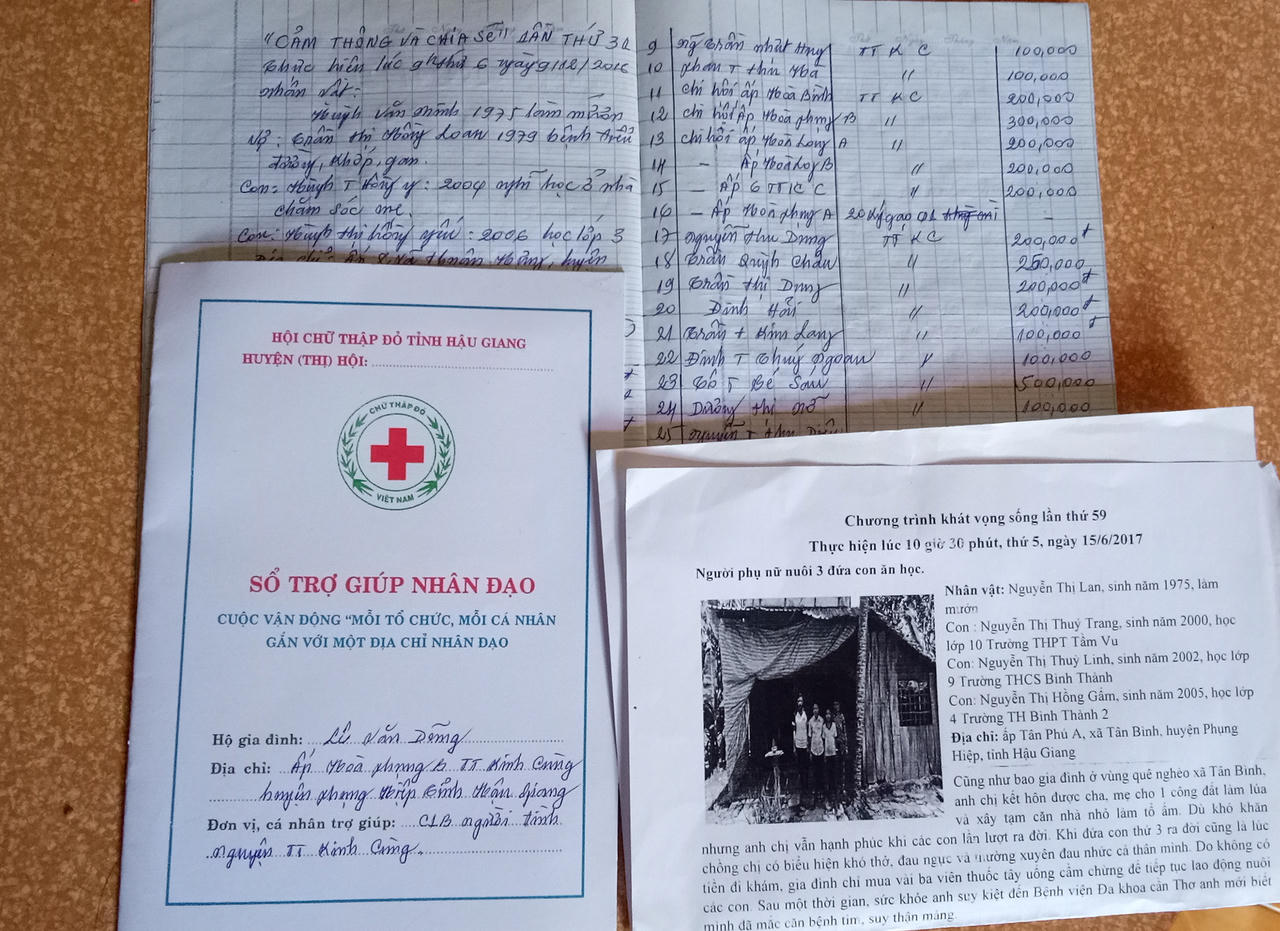 "CẢM THÔNG VÀ CHIA SẼ" LẦN THỨ 32
Thực hiện lúc 9h thứ 6 ngày 9/12/2016
nhân vật:
Huỳnh Văn Minh 1975 làm mướn
Vợ: Trần Thị Hồng Loan 1979 bệnh tiểu
đường, khớp, gan.
Con: Huỳnh T Hồng y: 2004 nghĩ học ở nhà
chăm sóc mẹ.
Con: Huỳnh thị hồng yến: 2006 học lớp 3
9 Trần nhựt TT KC 100,000
10 phan T thu Hà " 100,000
11 chi hội ấp Hoà Bình TT KC 200,000
12 chi hội Ấp Hoà phụng B " 300,000
13 chi hội ấp Hoà Long A " 200,000
14 - Ấp Hoà Long B " 200,000
15 - Ấp 6 TT KC " 200,000
16 - Ấp Hoà phụng A 20 ký gạo -
17 nguyễn thu Dung TT KC 200,000
18 Trần Quỳnh Châu " 250,000
19 Trần thị Dung " 200,000
20 Đinh Hải " 200,000
21 Trần t Kim Lang " 100,000
22 Đinh T Thuý ngoan " 100,000
23 Tô T Bé Sáu " 500,000
24 Dương thị nở " 100,000
25 nguyễn T thu
HỘI CHỮ THẬP ĐỎ TỈNH HẬU GIANG
HUYỆN (THỊ) HỘI:
CHỮ THẬP ĐỎ
VIỆT NAM
SỔ TRỢ GIÚP NHÂN ĐẠO
CUỘC VẬN ĐỘNG "MỖI TỔ CHỨC, MỖI CÁ NHÂN
GẮN VỚI MỘT ĐỊA CHỈ NHÂN ĐẠO
Hộ gia đình: Lê Văn Dững
Địa chỉ: Ấp Hoà phụng b TT Kinh Cùng
huyện phụng Hiệp tỉnh Hậu Giang
Đơn vị, cá nhân trợ giúp: CLB người tình
nguyện TT Kinh Cùng.
Chương trình khát vọng sống lần thứ 59
Thực hiện lúc 10 giờ 30 phút, thứ 5, ngày 15/6/2017
Người phụ nữ nuôi 3 đứa con ăn học.
Nhân vật: Nguyễn Thị Lan, sinh năm 1975, làm
mướn
Con : Nguyễn Thị Thuỳ Trang, sinh năm 2000, học
lớp 10 Trường THPT Tầm Vu
Con: Nguyễn Thị Thuỳ Linh, sinh năm 2002, học lớp
9 Trường THCS Bình Thành
Con: Nguyễn Thị Hồng Gấm, sinh năm 2005, học lớp
4 Trường TH Bình Thành 2
Địa chỉ: ấp Tân Phú A, xã Tân Bình, huyện Phụng
Hiệp, tỉnh Hậu Giang
Cũng như bao gia đình ở vùng quê nghèo xã Tân Bình,
anh chị kết hôn được cha, mẹ cho 1 công đất làm lúa
và xây tạm căn nhà nhỏ làm tổ ấm. Dù khó khăn
nhưng anh chị vẫn hạnh phúc khi các con lần lượt ra đời. Khi đứa con thứ 3 ra đời cũng là lúc
chồng chị có biểu hiện khó thở, đau ngực và thường xuyên đau nhức cả thân mình. Do không có
tiền đi khám, gia đình chỉ mua vài ba viên thuốc tây uống cầm chừng để tiếp tục lao động nuôi
các con. Sau một thời gian, sức khỏe anh suy kiệt đến Bệnh viện Đa khoa cần Thơ anh mới biết
mình đã mắc căn bệnh tim, suy thận mãng.